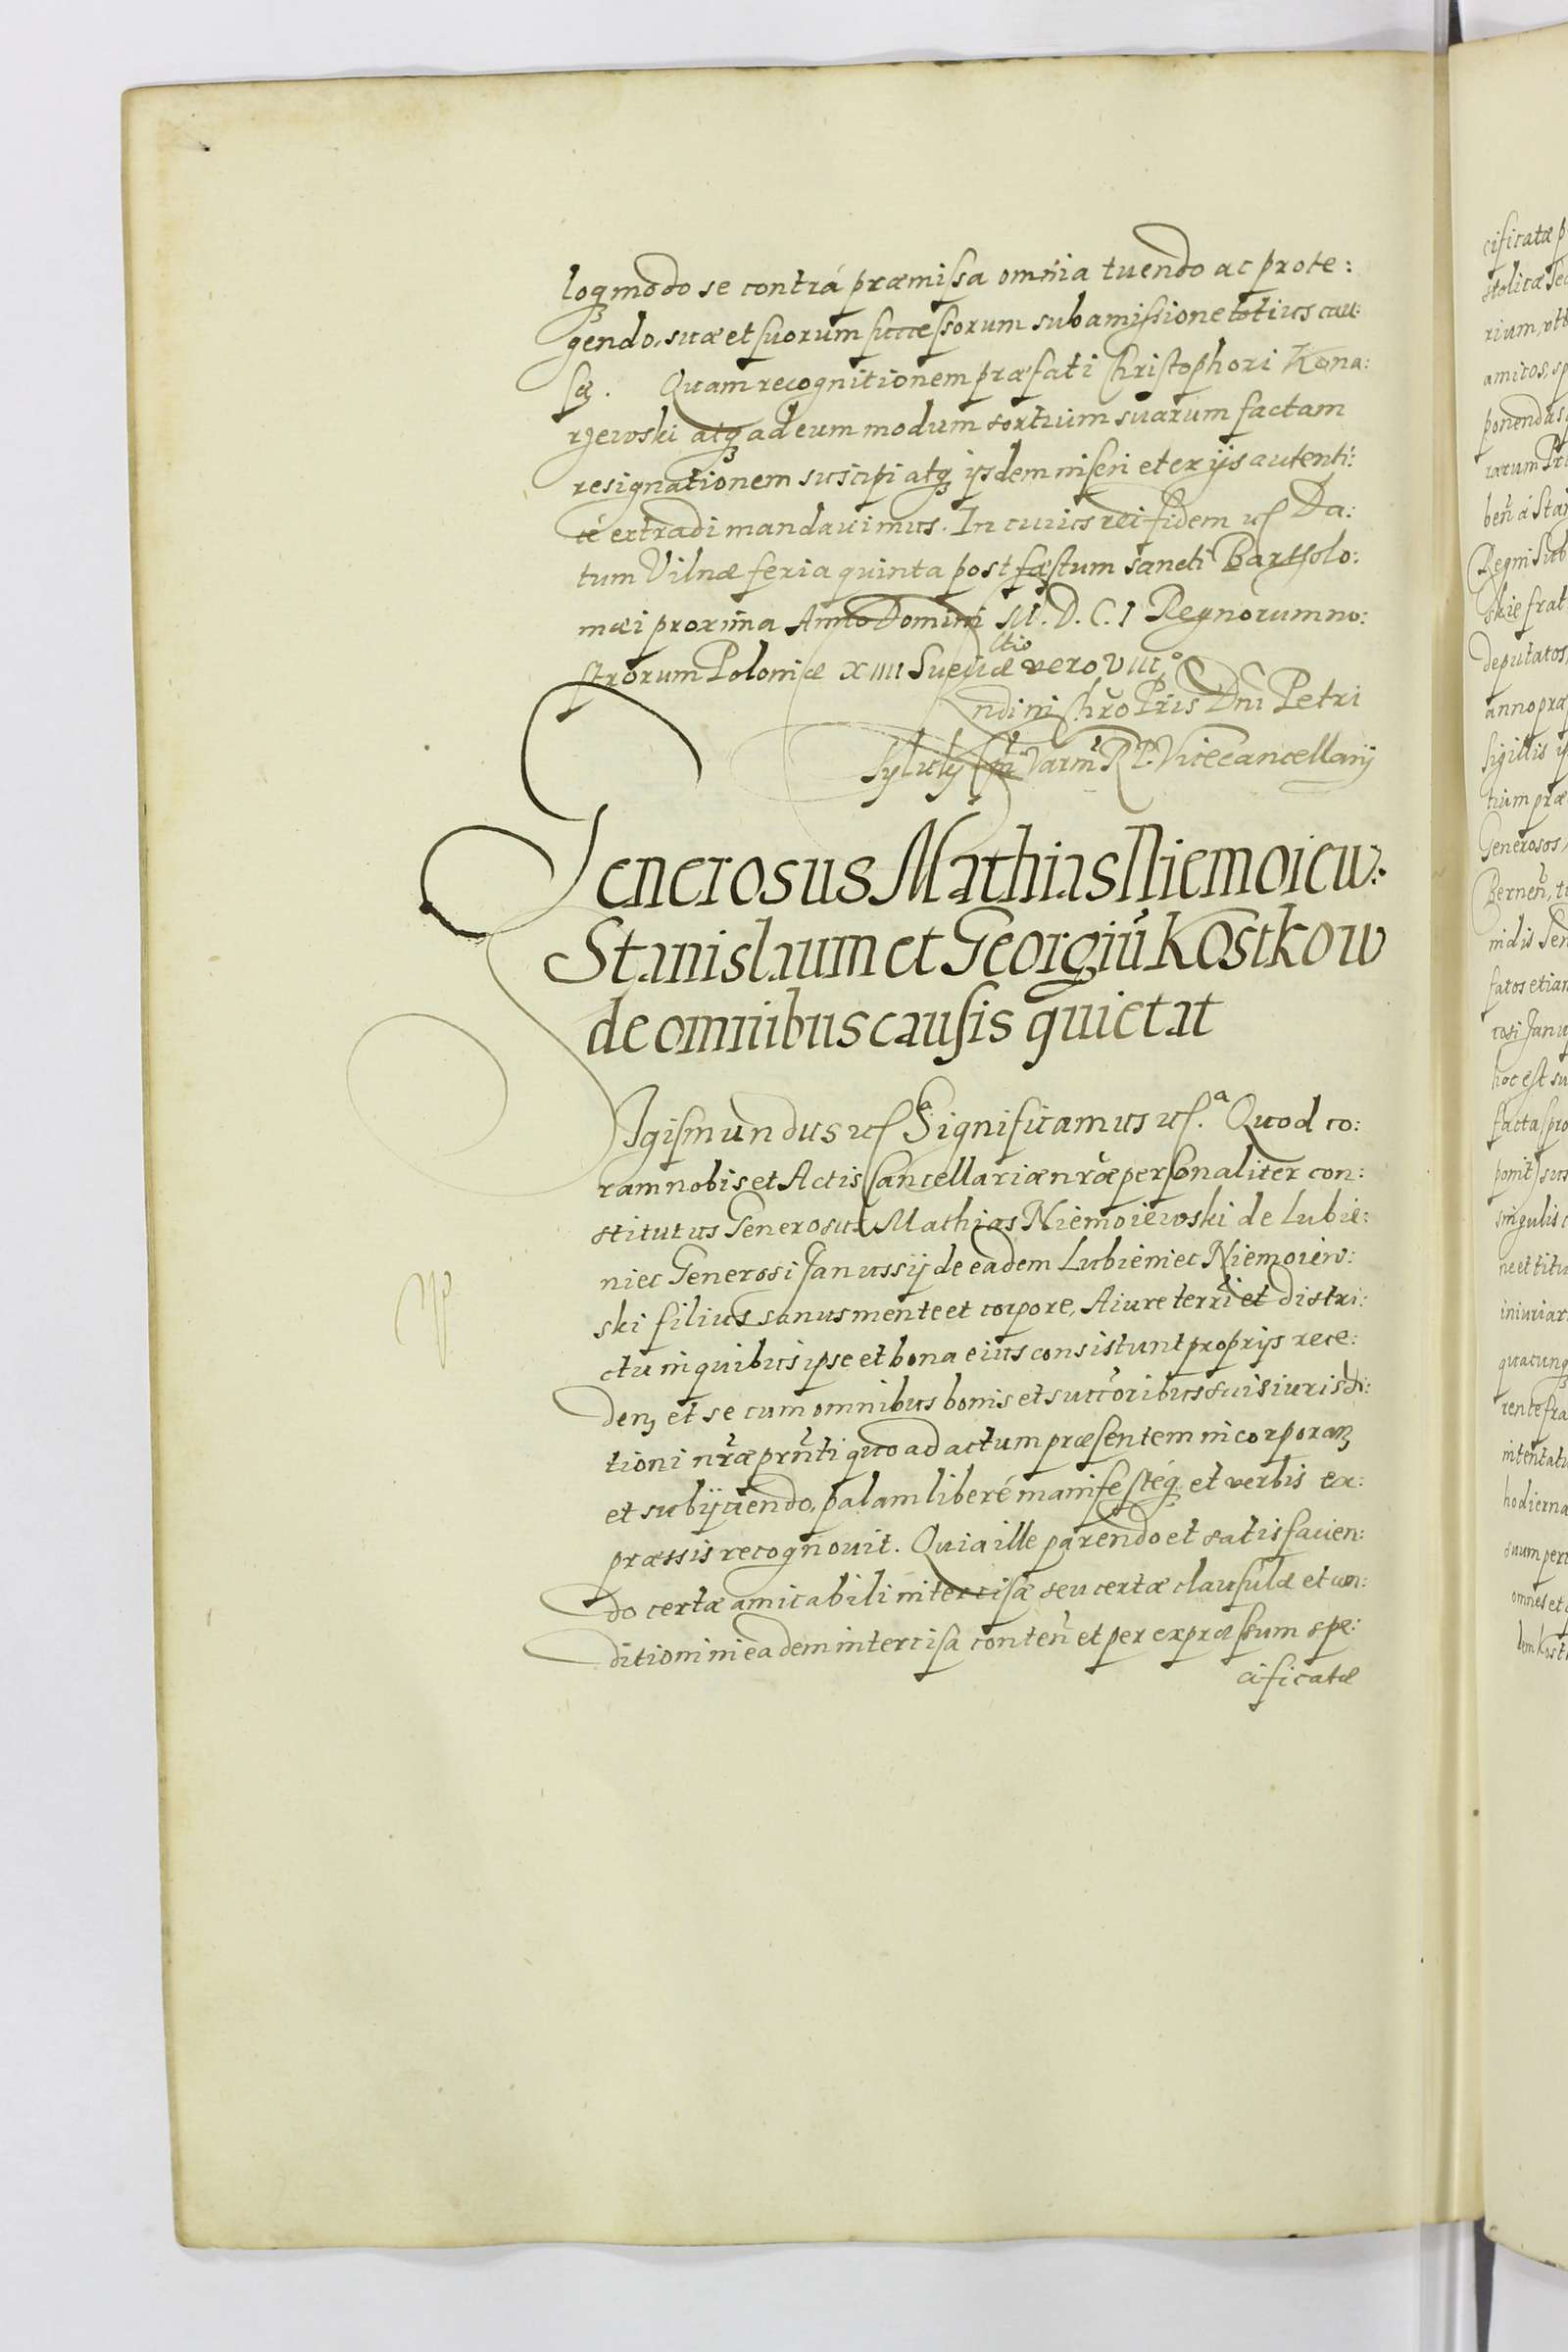 loqȝ modo se contrá præmissa omnia tuendo ac prote:
gendo, suæ et suorum successorum sub amissione totius cau:
sæ. Quam recognitionem præfati Christophori Kona:
rzewski atqȝ ad eum modum sortium suarum factam
resignationem suscipi atqȝ ijsdem inseri et ex ijs autenti:
cé extradi mandavimus. In cuius rei fidem etc Da:
tum Vilnæ feria quinta post fæstum sancti Bartholo:
mæi proxima Anno Domini M. D. C. I Regnorum no:
strorum Poloniæ XIIII Sueciæ vero VIII°
Petri
Tylicky Varm R P. Vicecancellarij
Generosus Mathias Niemoiew:
Stanislaum et Georgiũ Kostkow
de omnibus causis quietat
Sigismundus etc Significamus etc.ª Quod co:
ram nobis et Actis Cancellariæ nr̃æ personaliter con:
stitutus Generosus Mathias Niemoiewski de Lubie:
niec Generosi Janussij de eadem Lubieniec Niemoiew:
ski filius sanus mente et corpore, A iure terri et distri:
ctu in quibus ipse et bona eius consistunt proprijs rece:
denȝ et se cum omnibus bonis et succ̃oribus suis iurisdi:
tioni nr̃æ prñti quo ad actum præsentem incorporanȝ
et subijciendo, palam liberé manifestéqȝ et verbis ex:
præssis recognovit. Quia ille parendo et satisfacien:
do certæ amicabili intercisæ seu certæ clausulæ et con:
ditioni in eadem intercisa conteñ et per expræssum spe:
cificatæ
cificatæ p
stolicæ Se
rium, vt
amicos, sp
ponendas
rarum Pr
beñ á Sta
Regni Sub
skie frat
deputatos,
anno præ
sigillis ij
tium præ
Generosos,
Berneñ, t
nidis Gen
fatos etian
rosi Janu
hoc est su
facta spo
ponit) sus
singulis c
ne et titu
iniuriar
quacunqȝ
rente fra
intentatu
hodierna
suum per
omnes et
dem Kost